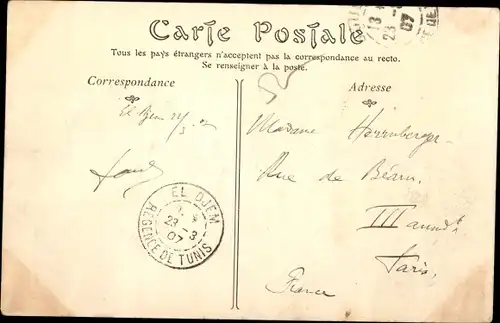 Carte Postale
Tous les pays étrangers n'acceptent pas la correspondance au recto.
Se renseigner à la poste.
Correspondance
Adresse
El Djem
Madame
Rue de Béarn
III
Paris
France
EL DJEM
23 - 3
07
REGENCE DE TUNIS
13
23
07